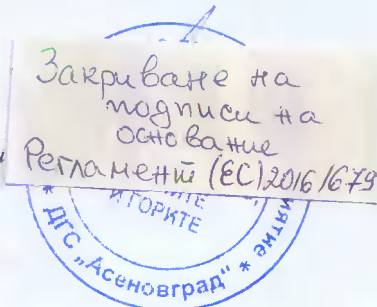 Закриване на
подписи на
основание
Регламент (ЕС) 2016/679
И ГОРИТЕ
* ДГС „Асеновград" *